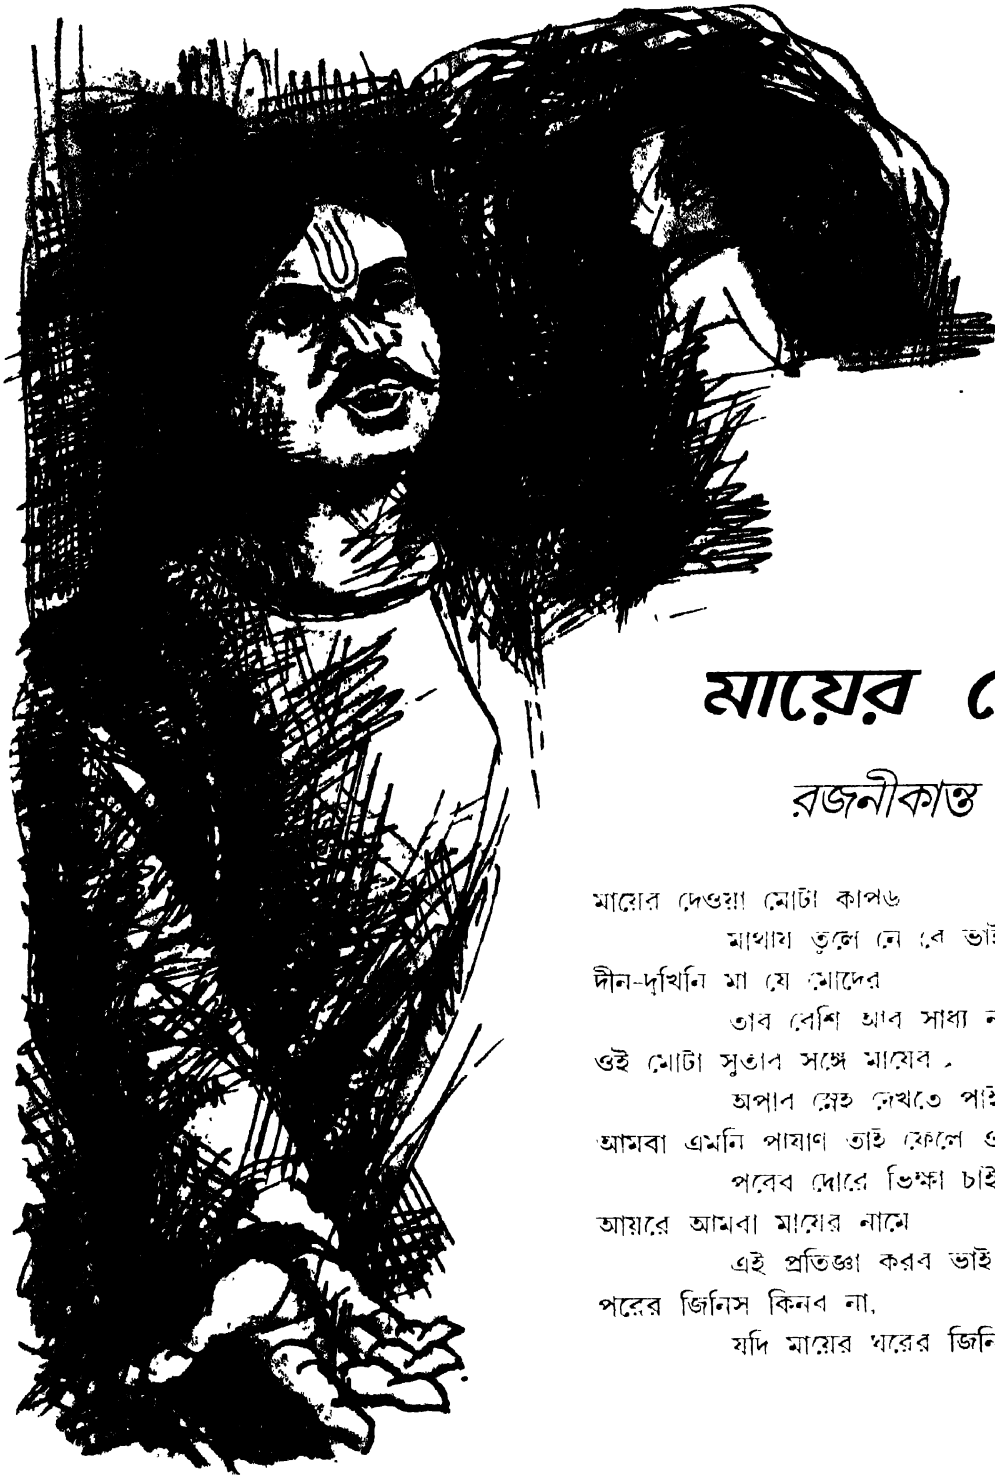 মায়ের
রজনীকান্ত
মায়ের দেওয়া মোটা কাপড
মাথায তুলে নে বে ভাই
দীন-দুখিনি মা যে মোদের
তাব বেশি আব সাধ্য ন
ওই মোটা সুতাব সঙ্গে মাযেব
অপাব স্নেহ দেখতে পাই
আমবা এমনি পাষাণ তাই ফেলে ও
পবেব দোরে ভিক্ষা চাই
আয়রে আমবা মাযের নামে
এই প্রতিজ্ঞা করব ভাই
পরের জিনিস কিনব না,
যদি মায়ের ঘরের জিনি